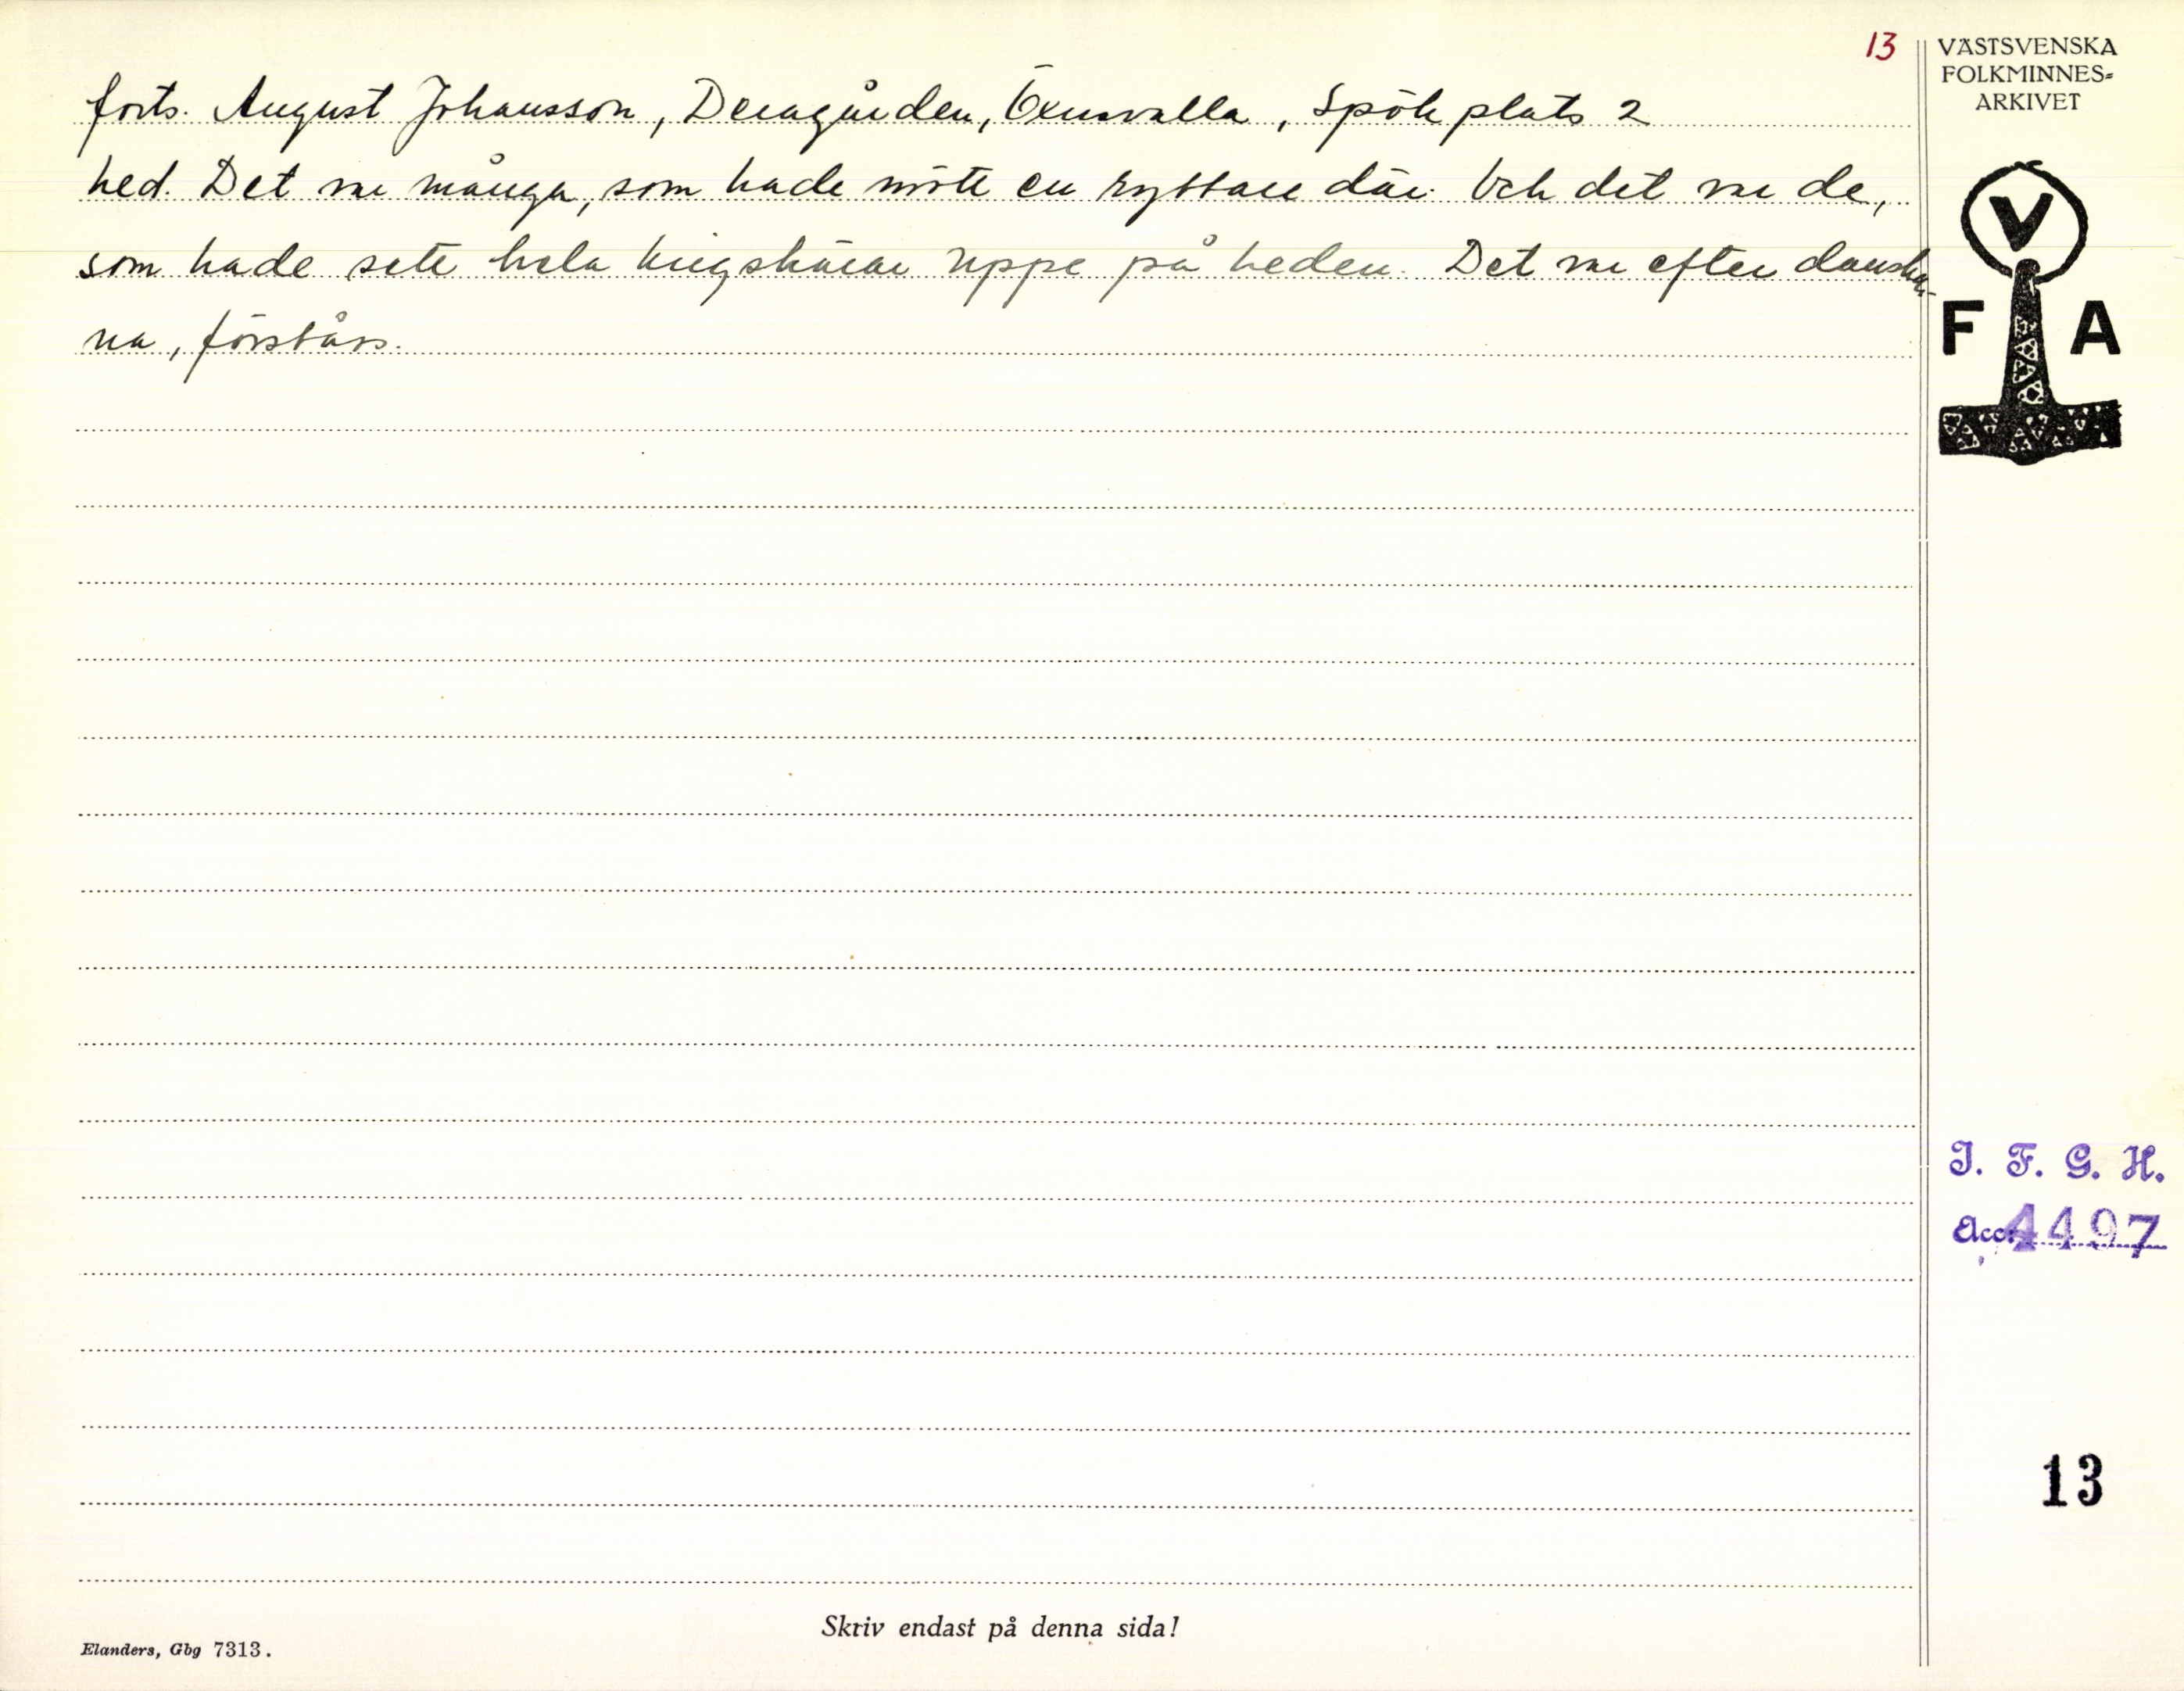 13
VÄSTSVENSKA
FOLKMINNES-
ARKIVET
forts. August Johansson, Deragården, Öxnevalla, Spökplats 2
hed. Det var många, som hade mött en ryttare där. Och det var de,
som hade sett hela krigshärar uppe på heden. Det var efter danskar-
na, förstårs.
V
F A
I. F. G. H.
Acc. 4497
13
Skriv endast på denna sida!
Elanders, Gbg 7313.